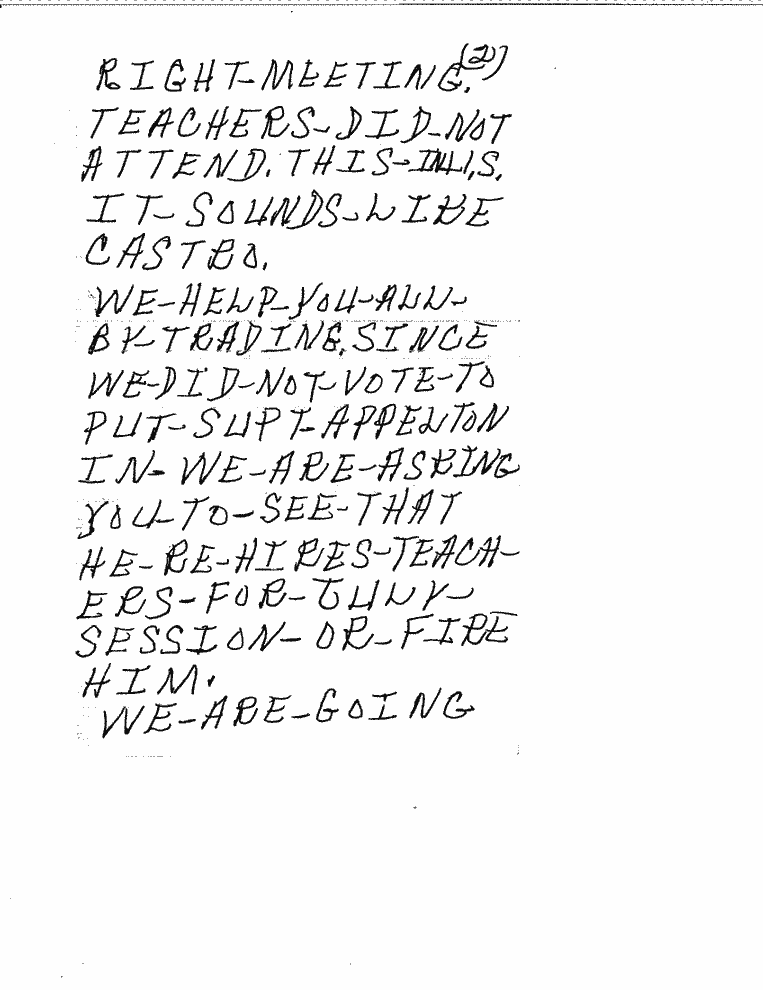 (2)
RIGHT-MEETING.
TEACHERS-DID-NOT
ATTEND. THIS-IN U,S,
IT-SOUNDS-LIKE
CASTRO.
WE-HELP-YOU-ALL-
BY-TRADING. SINCE
WE-DID-NOT-VOTE-TO
PUT-SUPT-APPELTON
IN-WE-ARE-ASKING
YOU-TO-SEE-THAT
HE-RE-HIRES-TEACH-
ERS-FOR-JULY-
SESSION-OR-FIRE
HIM.
WE-ARE-GOING